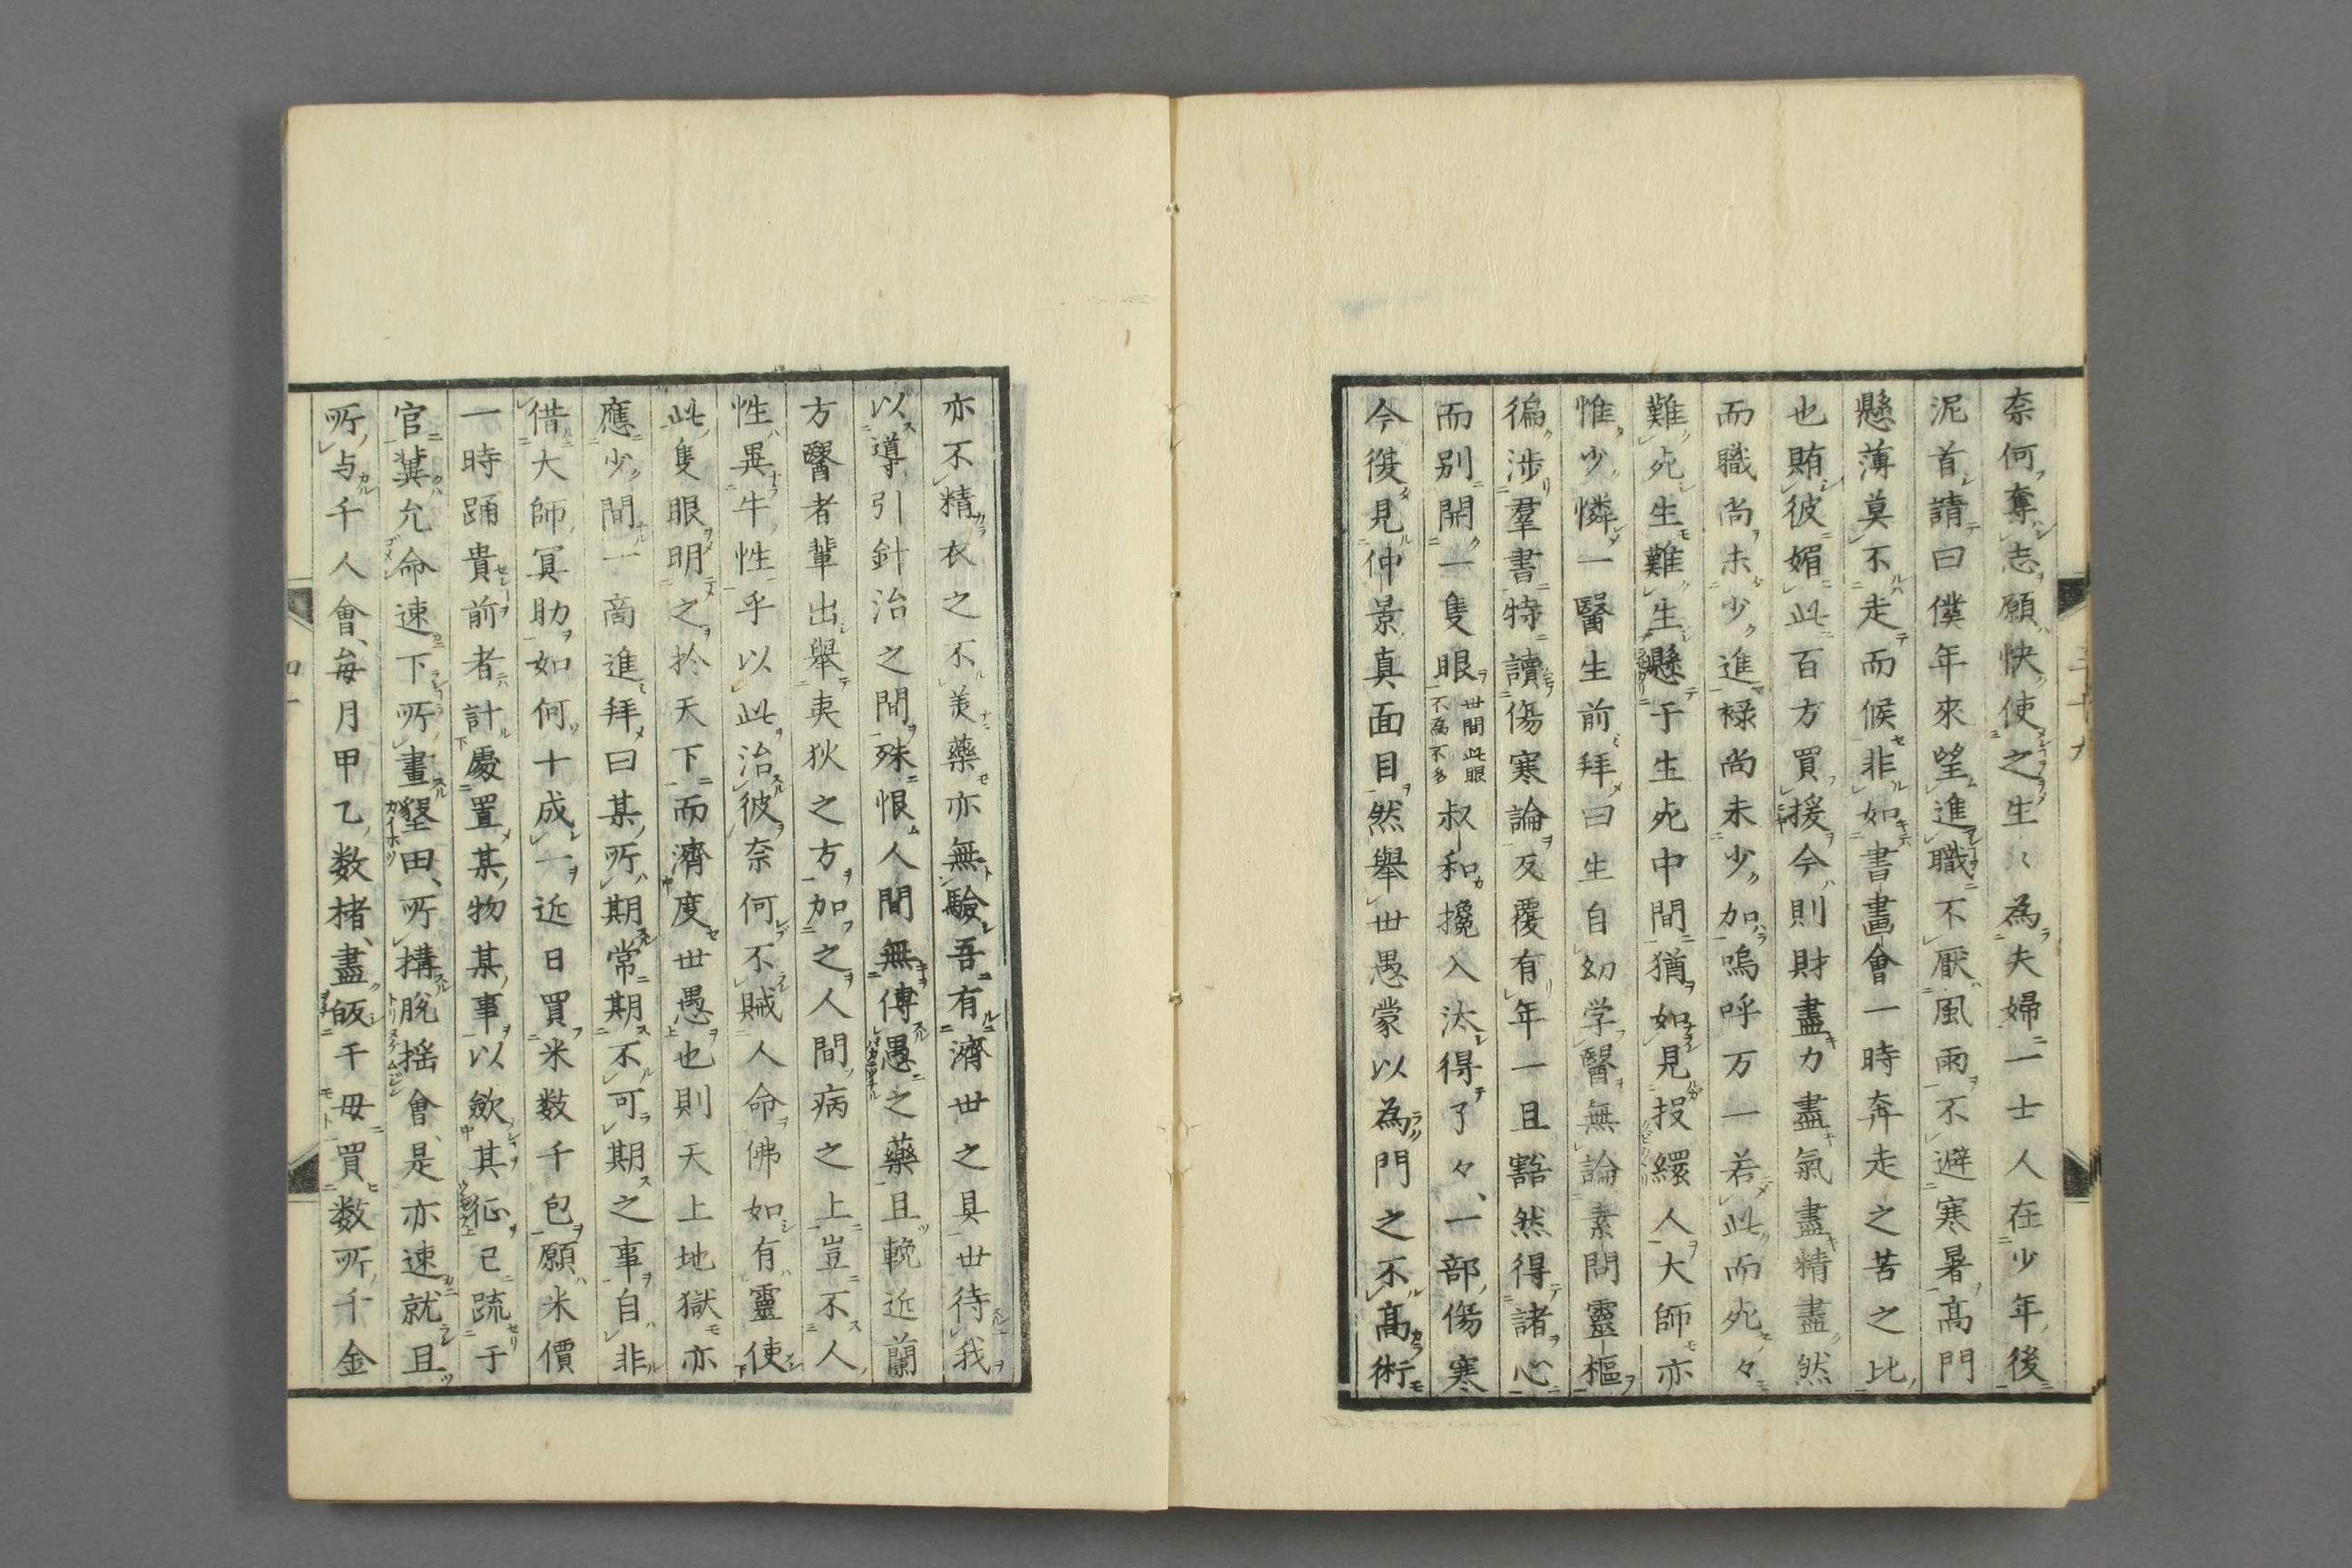 奈何奪志願快使之生〻為夫婦一士人在少年後
泥首請曰僕年來望進職不厭風雨不避寒暑高門
懸薄莫不走而候非如書畫會一時奔走之苦之比
也賄彼媚此百方買援今則財盡力盡氣盡精盡然
而職尚未少進祿尚未少加嗚呼万一若此而死々
難死生難生懸于生死中間猶如見投繯人大師亦
惟少憐一醫生前拜曰生自幼学醫無論素問靈樞
徧涉羣書特讀傷寒論反覆有年一旦豁然得諸心
而別開一隻眼世間此眼不為不多叔和攙入汰得了々一部傷寒
今復見仲景真面目然舉世愚蒙以為門之不高術
亦不精衣之不羙藥亦無驗吾有濟世之具世待我
以導引針治之間殊恨人間無傅愚之藥且輓近蘭
方醫者輩出舉夷狄之方加之人間病之上豈不人
性異牛性乎以此治彼奈何不賊人命佛如有靈使
此隻眼明之於天下而濟度世愚也則天上地獄亦
應少間一商進拜曰某所期常期不可期之事自非
借大師冥助如何十成一近日買米数千包願米價
一時踊貴前者計處置某物某事以斂其怔已疏于
官冀允命速下所畫墾田所搆脫搖會是亦速就且
所与千人會每月甲乙数楮盡皈千毋買数所千金